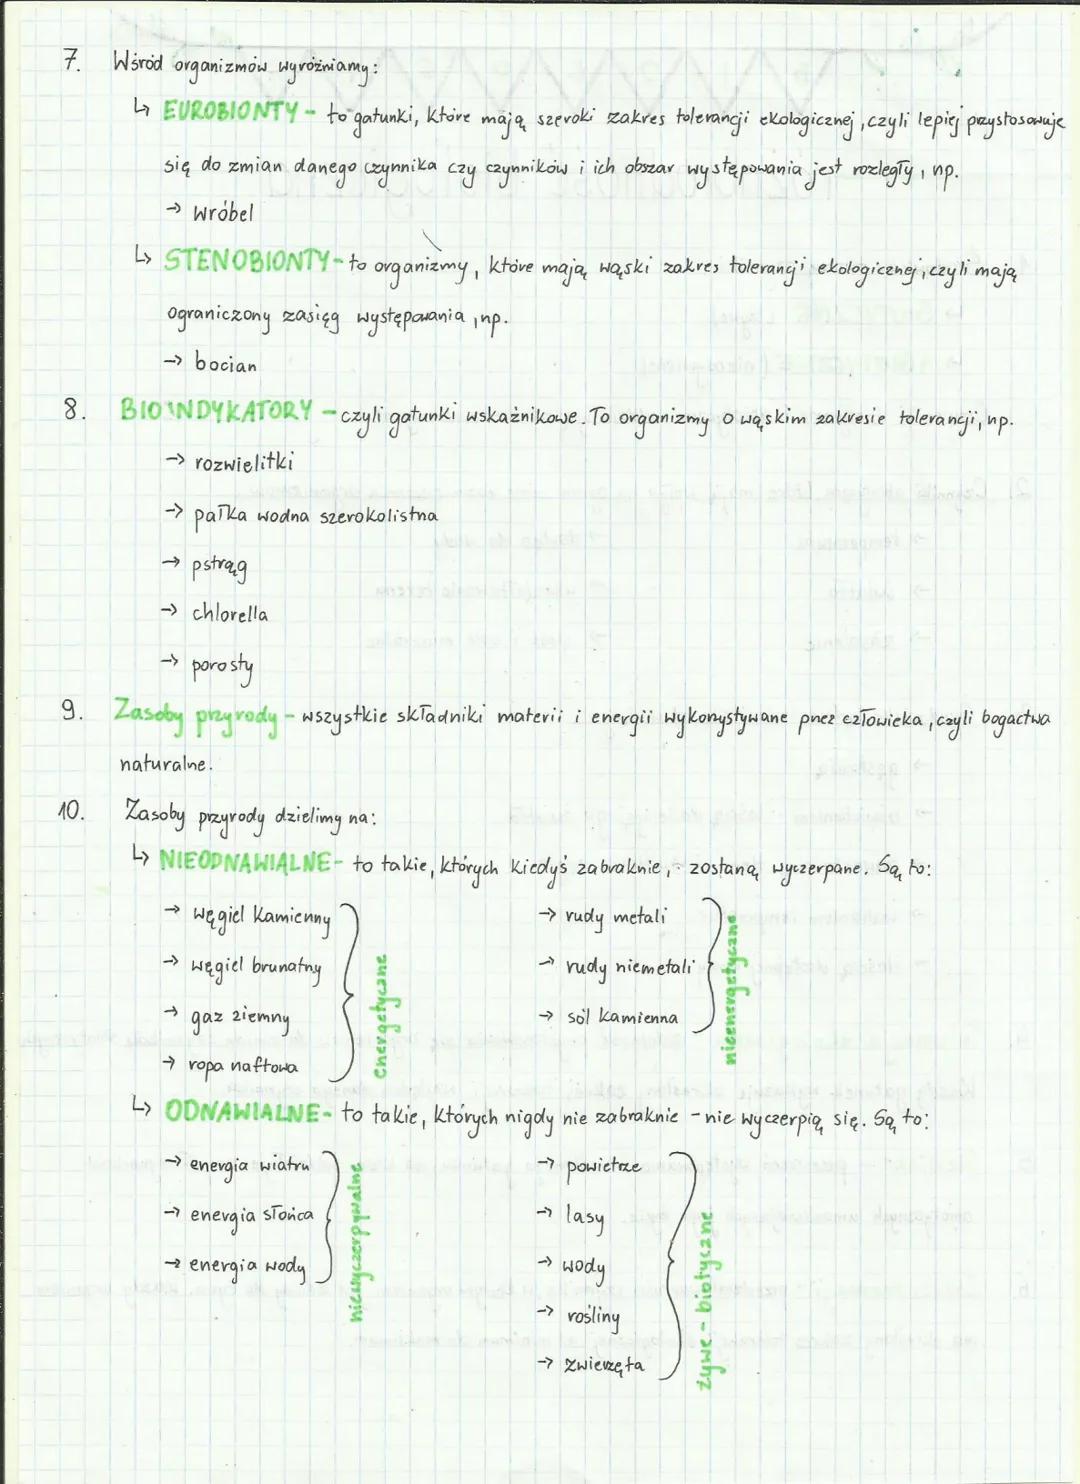 7. Wśród organizmów wyróżniamy:
↳ EUROBIONTY - to gatunki, które mają szeroki zakres tolerancji ekologicznej, czyli lepiej przystosowuje
się do zmian danego czynnika czy czynników i ich obszar występowania jest rozległy, np.
→ wróbel
↳ STENOBIONTY - to organizmy, które mają wąski zakres tolerancji ekologicznej, czyli mają
ograniczony zasięg występowania, np.
→ bocian
8. BIOINDYKATORY - czyli gatunki wskaźnikowe. To organizmy o wąskim zakresie tolerancji, np.
→ rozwielitki
→ pałka wodna szerokolistna
→ pstrąg
→ chlorella
→ porosty
9. Zasoby przyrody - wszystkie składniki materii i energii wykorzystywane przez człowieka, czyli bogactwa
naturalne.
10. Zasoby przyrody dzielimy na:
↳ NIEODNAWIALNE - to takie, których kiedyś zabraknie, - zostaną wyczerpane. Są to:
→ węgiel kamienny
→ węgiel brunatny
→ gaz ziemny
→ ropa naftowa
energetyczne
→ rudy metali
→ rudy niemetali
→ sól kamienna
nieenergetyczne
↳ ODNAWIALNE - to takie, których nigdy nie zabraknie - nie wyczerpią się. Są to:
→ energia wiatru
→ energia słońca
→ energia wody
niewyczerpywalne
→ powietrze
→ lasy
→ wody
→ rośliny
→ zwierzęta
żywe - biotyczne